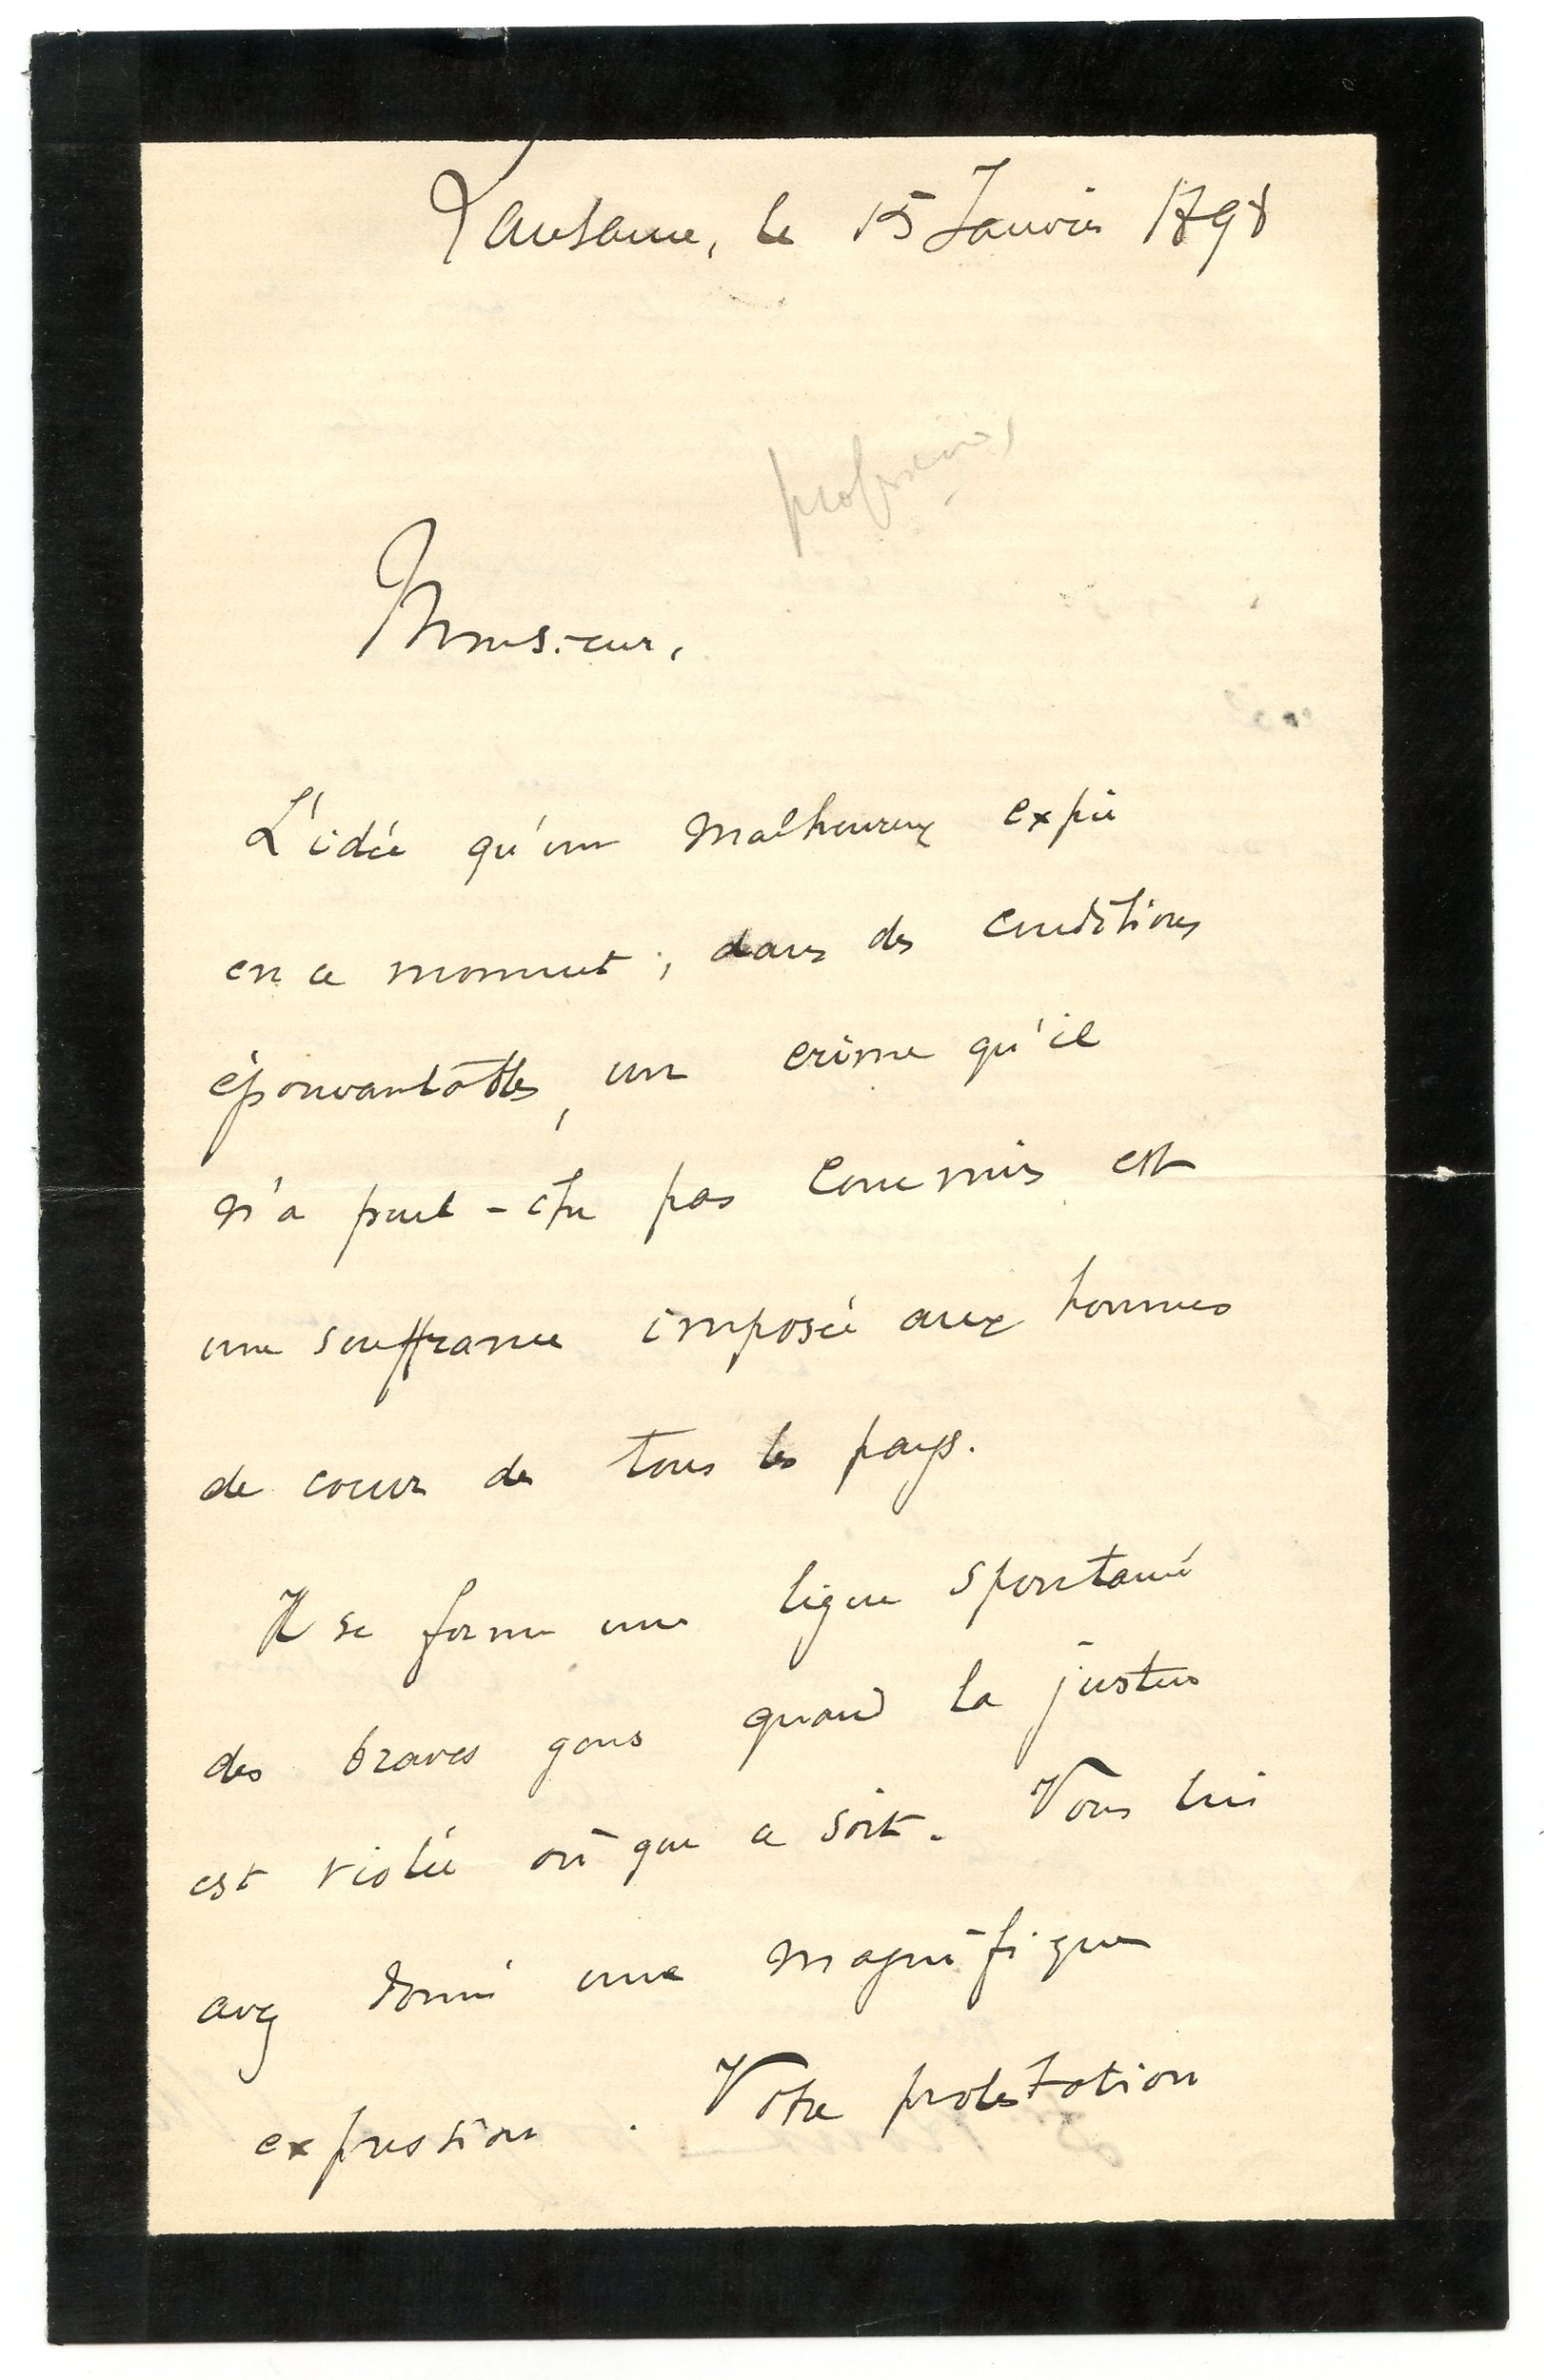 Lausanne, le 15 Janvier 1898
professeur
Monsieur,
L'idée qu'un malheureux expie
en ce moment, dans des conditions
épouvantables, un crime qu'il
n'a peut-être pas commis est
une souffrance imposée aux hommes
de coeur de tous les pays.
Il se forme une ligue spontanée
des braves gens quand la justice
est violée où que ce soit. Vous lui
avez donné une magnifique
expression. Votre protestation